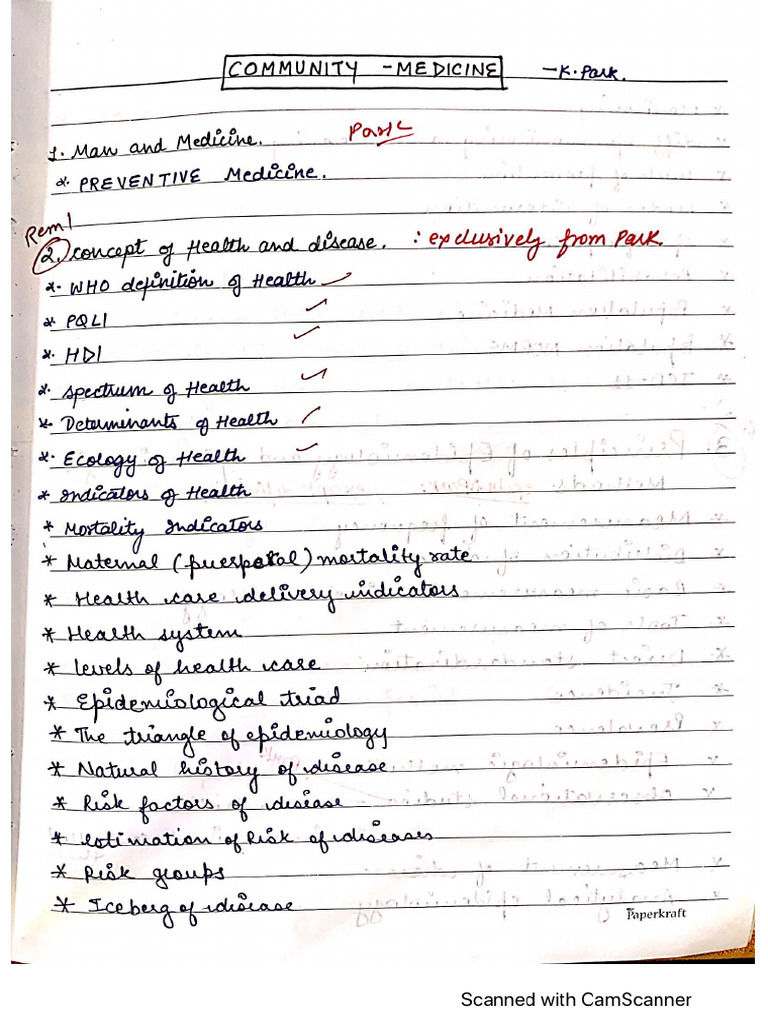 COMMUNITY - MEDICINE - K. Park.
1. Man and Medicine. Park
*. PREVENTIVE Medicine.
Rem!
2. Concept of Health and disease. : exclusively from Park.
*. WHO definition of Health ✓
*. PQLI ✓
*. HDI ✓
*. Spectrum of Health ✓
*. Determinants of Health ✓
*. Ecology of Health ✓
* Indicators of Health
* Mortality Indicators
* Maternal (puerperal) mortality rate
* Health care delivery indicators
* Health system
* levels of health care
* Epidemiological triad
* The triangle of epidemiology
* Natural history of disease
* Risk factors of disease
* estimation of Risk of diseases
* Risk groups
* Iceberg of disease
Paperkraft
Scanned with CamScanner